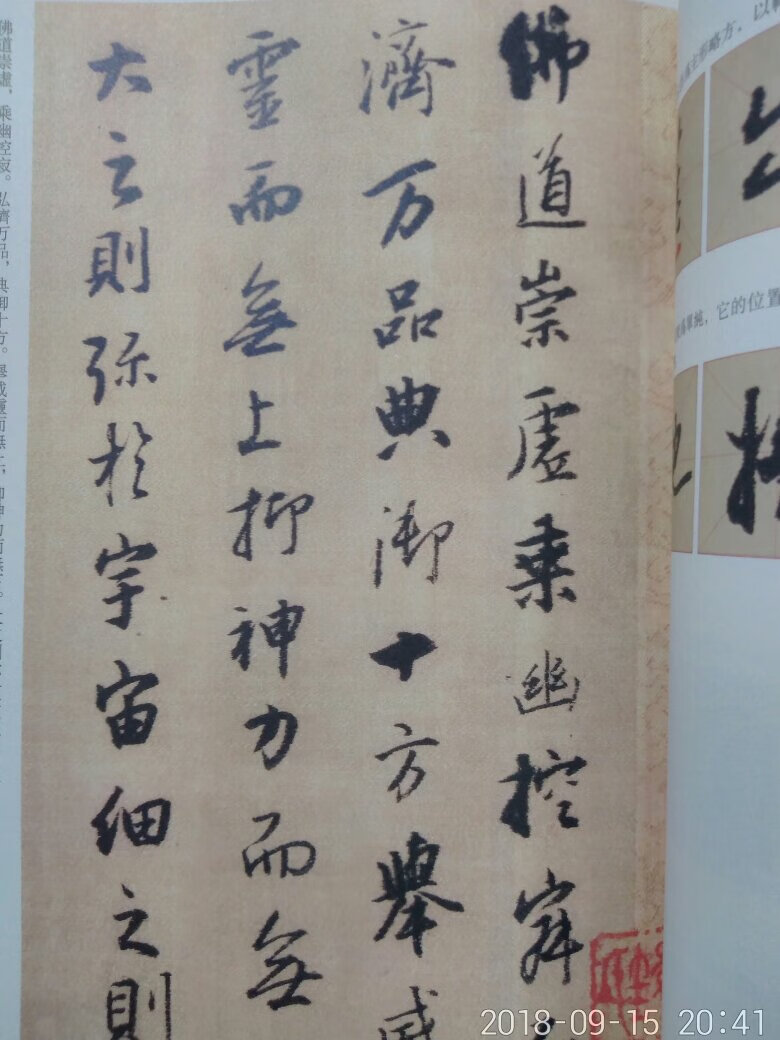 主形略方，以
單純，它的位置
佛道崇虛乘幽控寂
濟万品典御十方舉威
靈而無上抑神力而無
大之則弥於宇宙細之則
佛道崇虛，乘幽控寂。弘濟万品，典御十方。舉威靈而無上，抑神力而無
2018-09-15 20:41